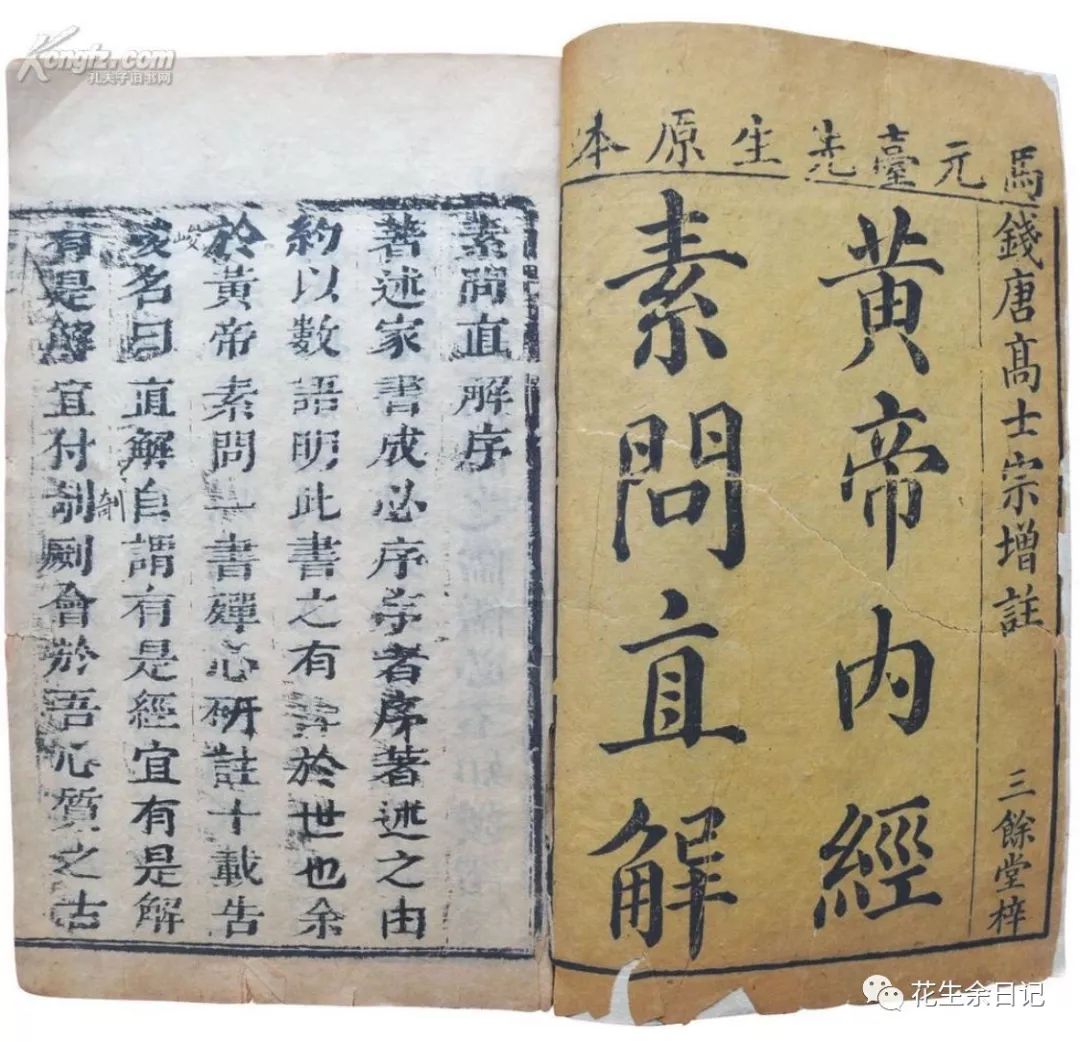 馬元臺先生原本
錢唐髙士宗增註
三餘堂梓
黄帝内經
素問直解
素問直解序
著述家書成必序序者序著述之由
約以數語明此書之有於世也余
於黃帝素問一書殫心研註十載告
峻
名曰直解自謂有是經宜有是解
剞
有是解宜付劂會於吾心質之古
Kongfz.com
孔夫子旧书网
花生余日记